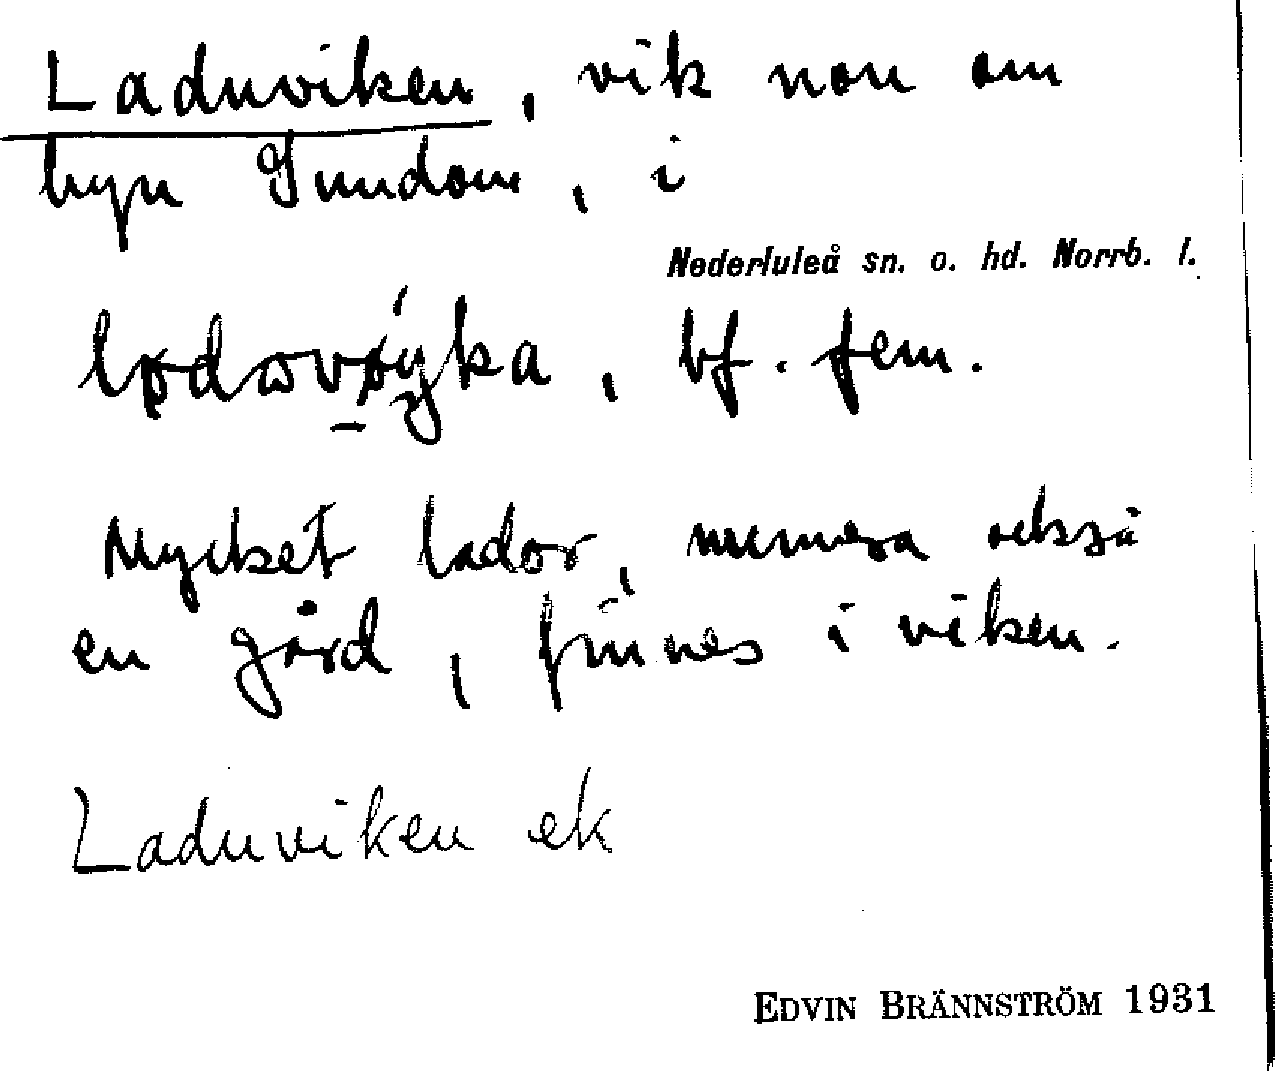 Laduviken, vik norr om
byn Sundom, i
Nederluleå sn. o. hd. Norrb. l.
bf. fem.
Mycket lador, numera också
en gård, finnes i viken.
Laduviken ek
EDVIN BRÄNNSTRÖM 1931